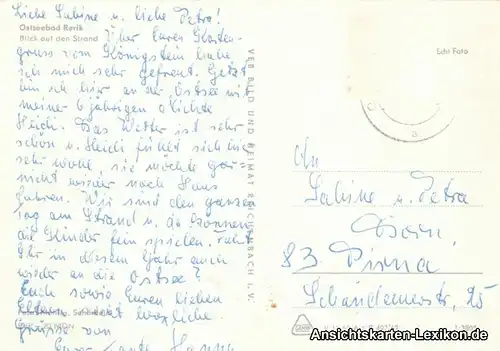 Liebe Sabine u. liebe Petra!
Ostseebad Rerik
Blick auf den Strand
Über Euren Karten-
gruss vom Königstein habe
ich mich sehr gefreut. Jetzt
bin ich hier an der Ostsee mit
meiner 6 jährigen Nichte
Heidi. Das Wetter ist sehr
schön u. Heidi fühlt sich hier
sehr wohl, sie möchte gar-
nicht wieder nach Haus
fahren. Wir sind den ganzen
Tag am Strand u. da können
die Kinder fein spielen. Fahrt
Ihr in diesem Jahr auch
wieder an die Ostsee?
Euch sowie Euren lieben
Eltern herzliche
Grüsse von
Eurer Tante Hanna
VEB BILD UND HEIMAT REICHENBACH I. V.
Echt Foto
An
Sabine u. Petra
83 Pirna
Schandauerstr. 25
Ansichtskarten-Lexikon.de